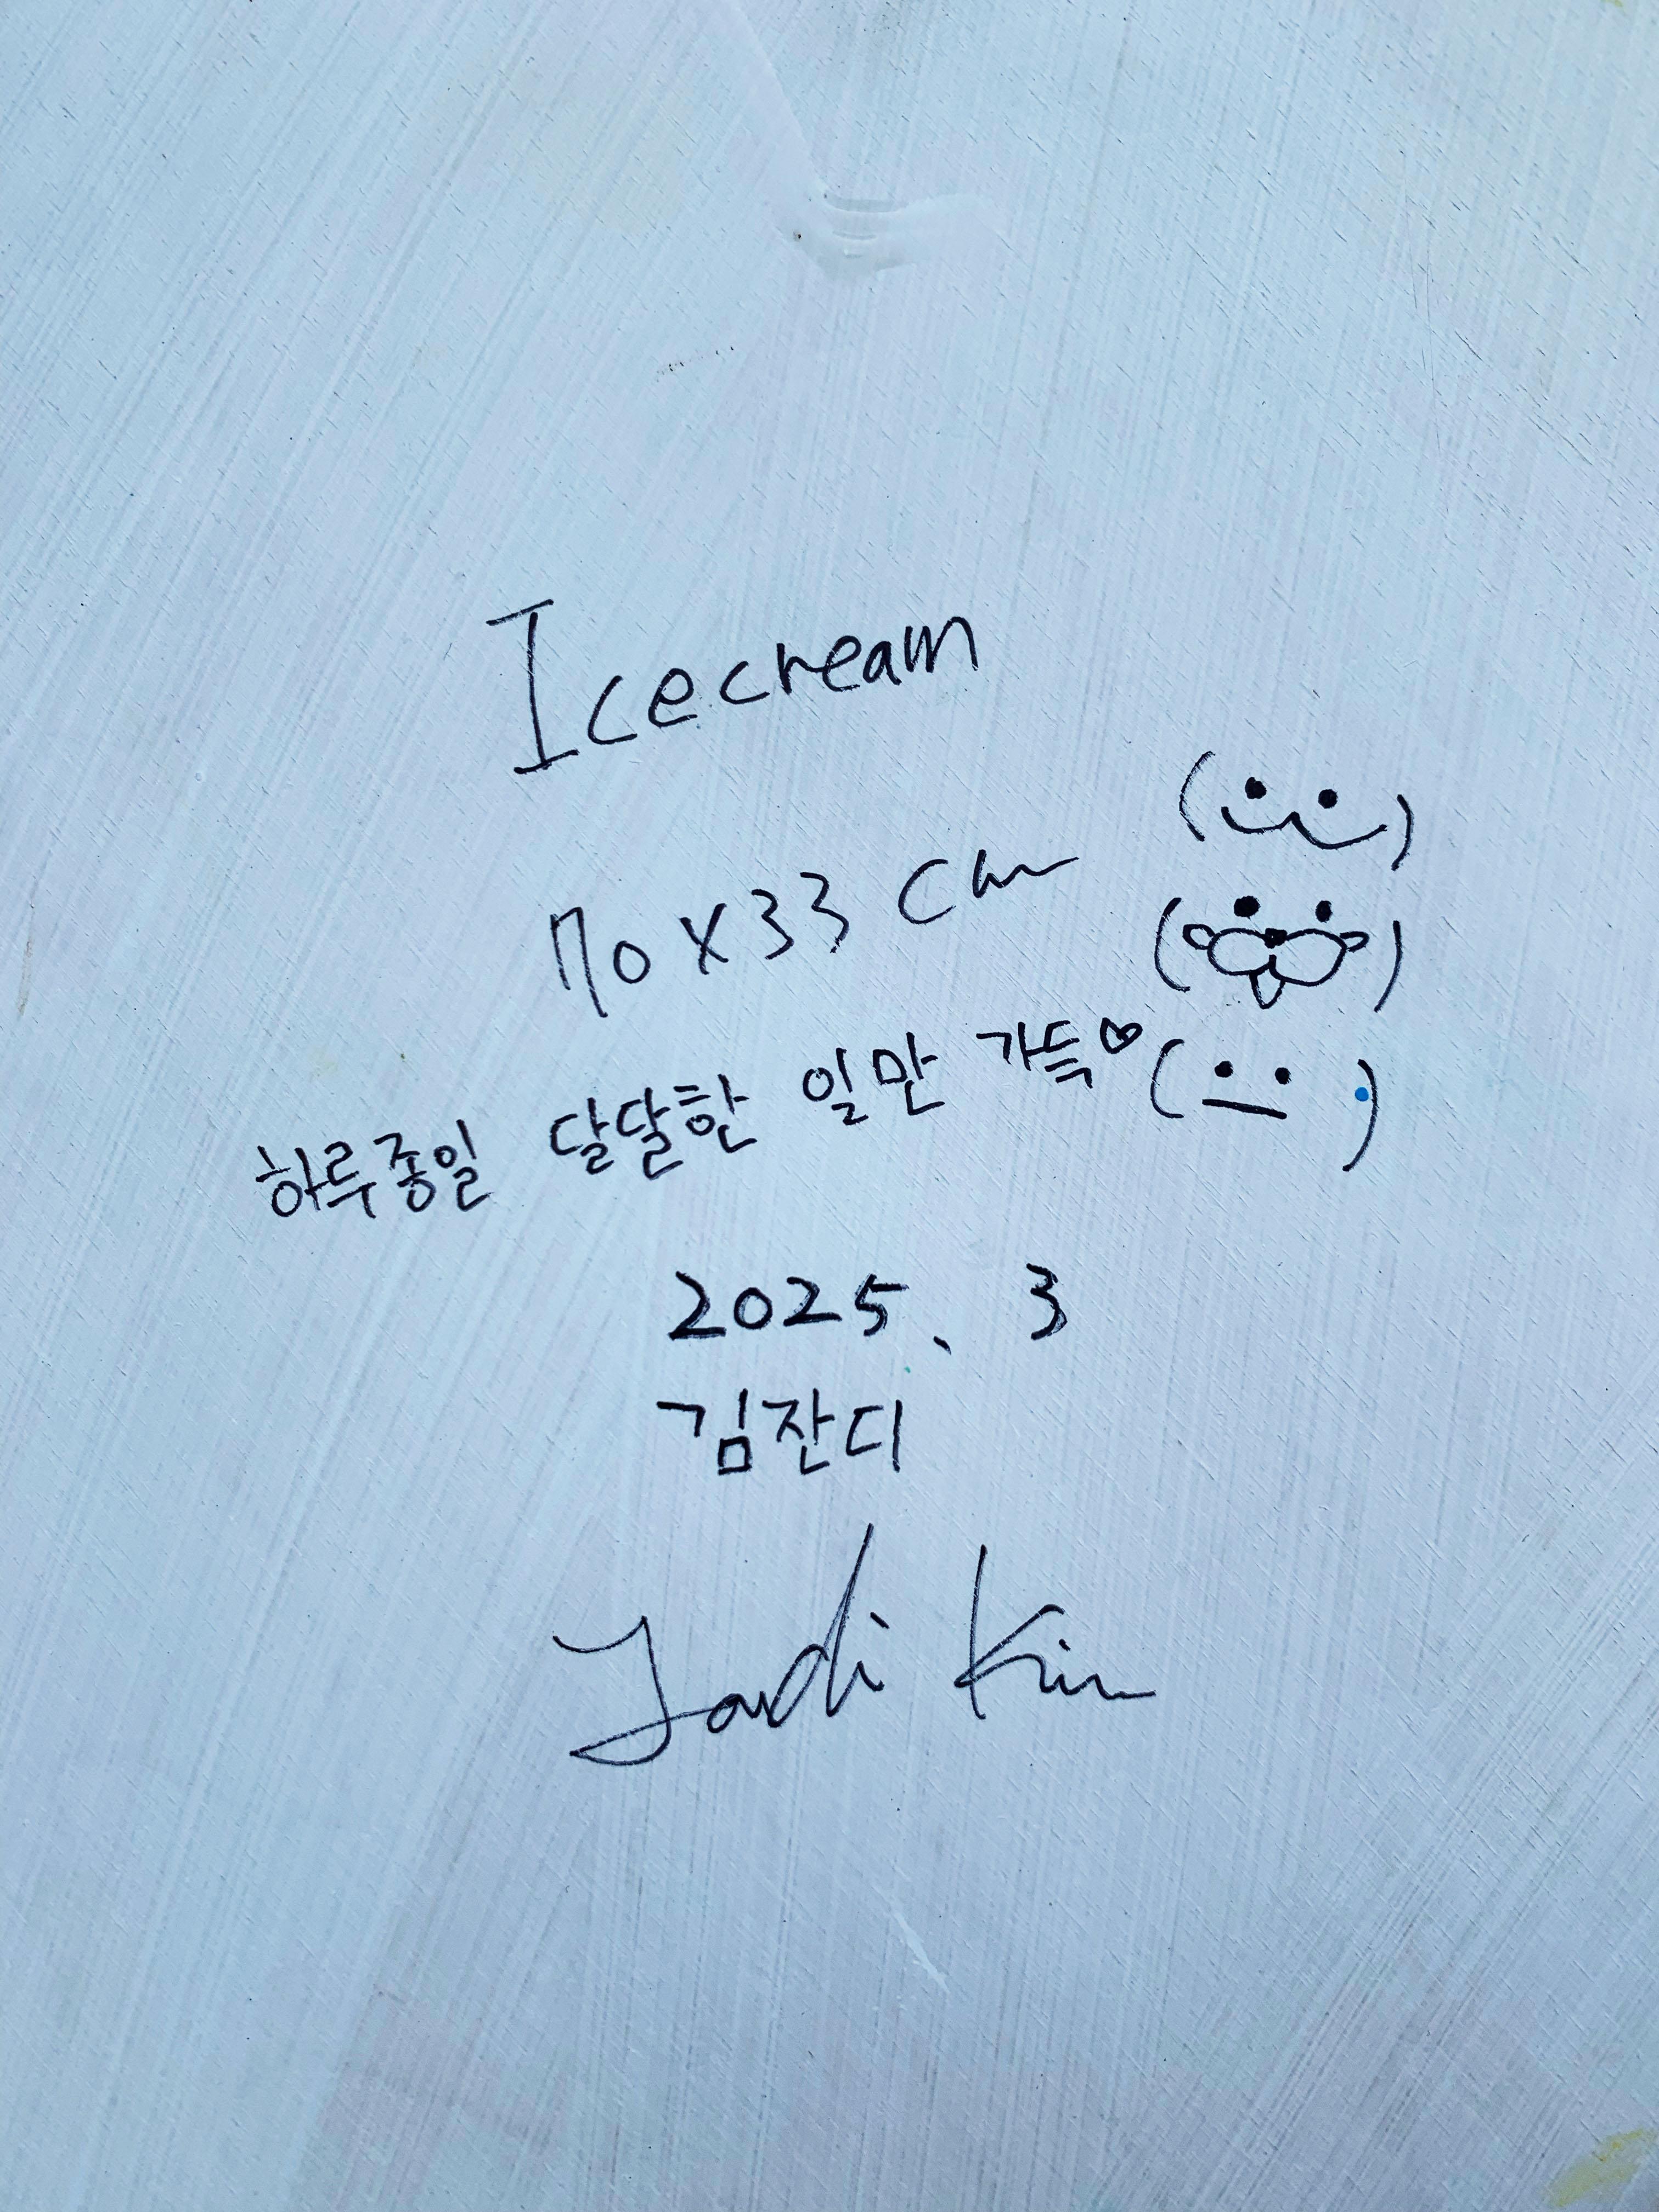 Icecream
70 x 33 cm
하루종일 달달한 일만 가득♡
2025. 3
김잔디
Jandi Kim